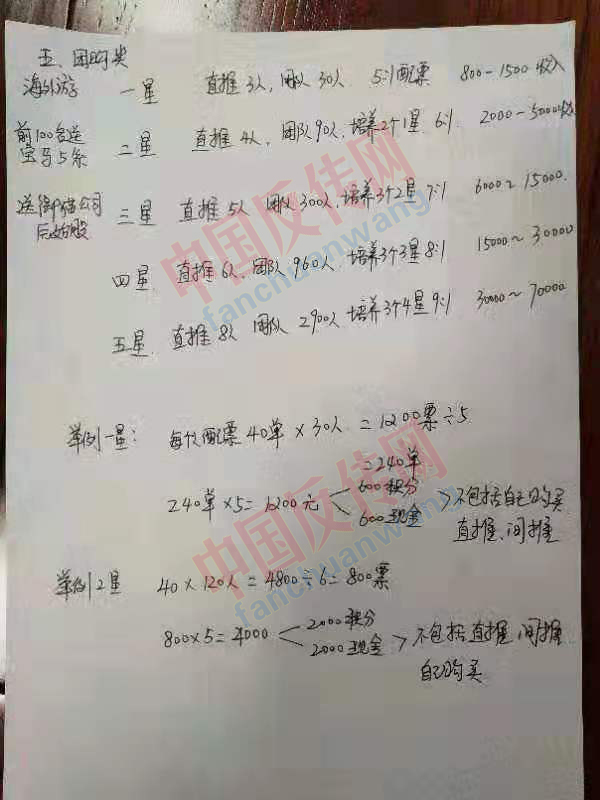 五、团购类
海外游 一星 直推3人, 团队30人. 5:1配票 800-1500收入
前100名送宝马5系 二星 直推4人, 团队90人, 培养2个1星 6:1 2000-5000收入
送御猫公司原始股 三星 直推5人 团队300人. 培养3个2星 7:1 6000~15000.
四星. 直推6人, 团队960人, 培养3个3星 8:1 15000~30000
五星 直推8人 团队2900人. 培养3个4星 9:1 30000~70000
举例一星: 每人配票40单×30人 =1200票÷5
=240单
240单×5=1200元 600积分 600现金 >不包括自己购买 直推、间推
举例2星 40×120人=4800÷6=800票
800×5=4000 2000积分 2000现金 >不包括直推, 间推 自己购买
中国反传网
fanchuanwang
中国反传网
fanchuanwang